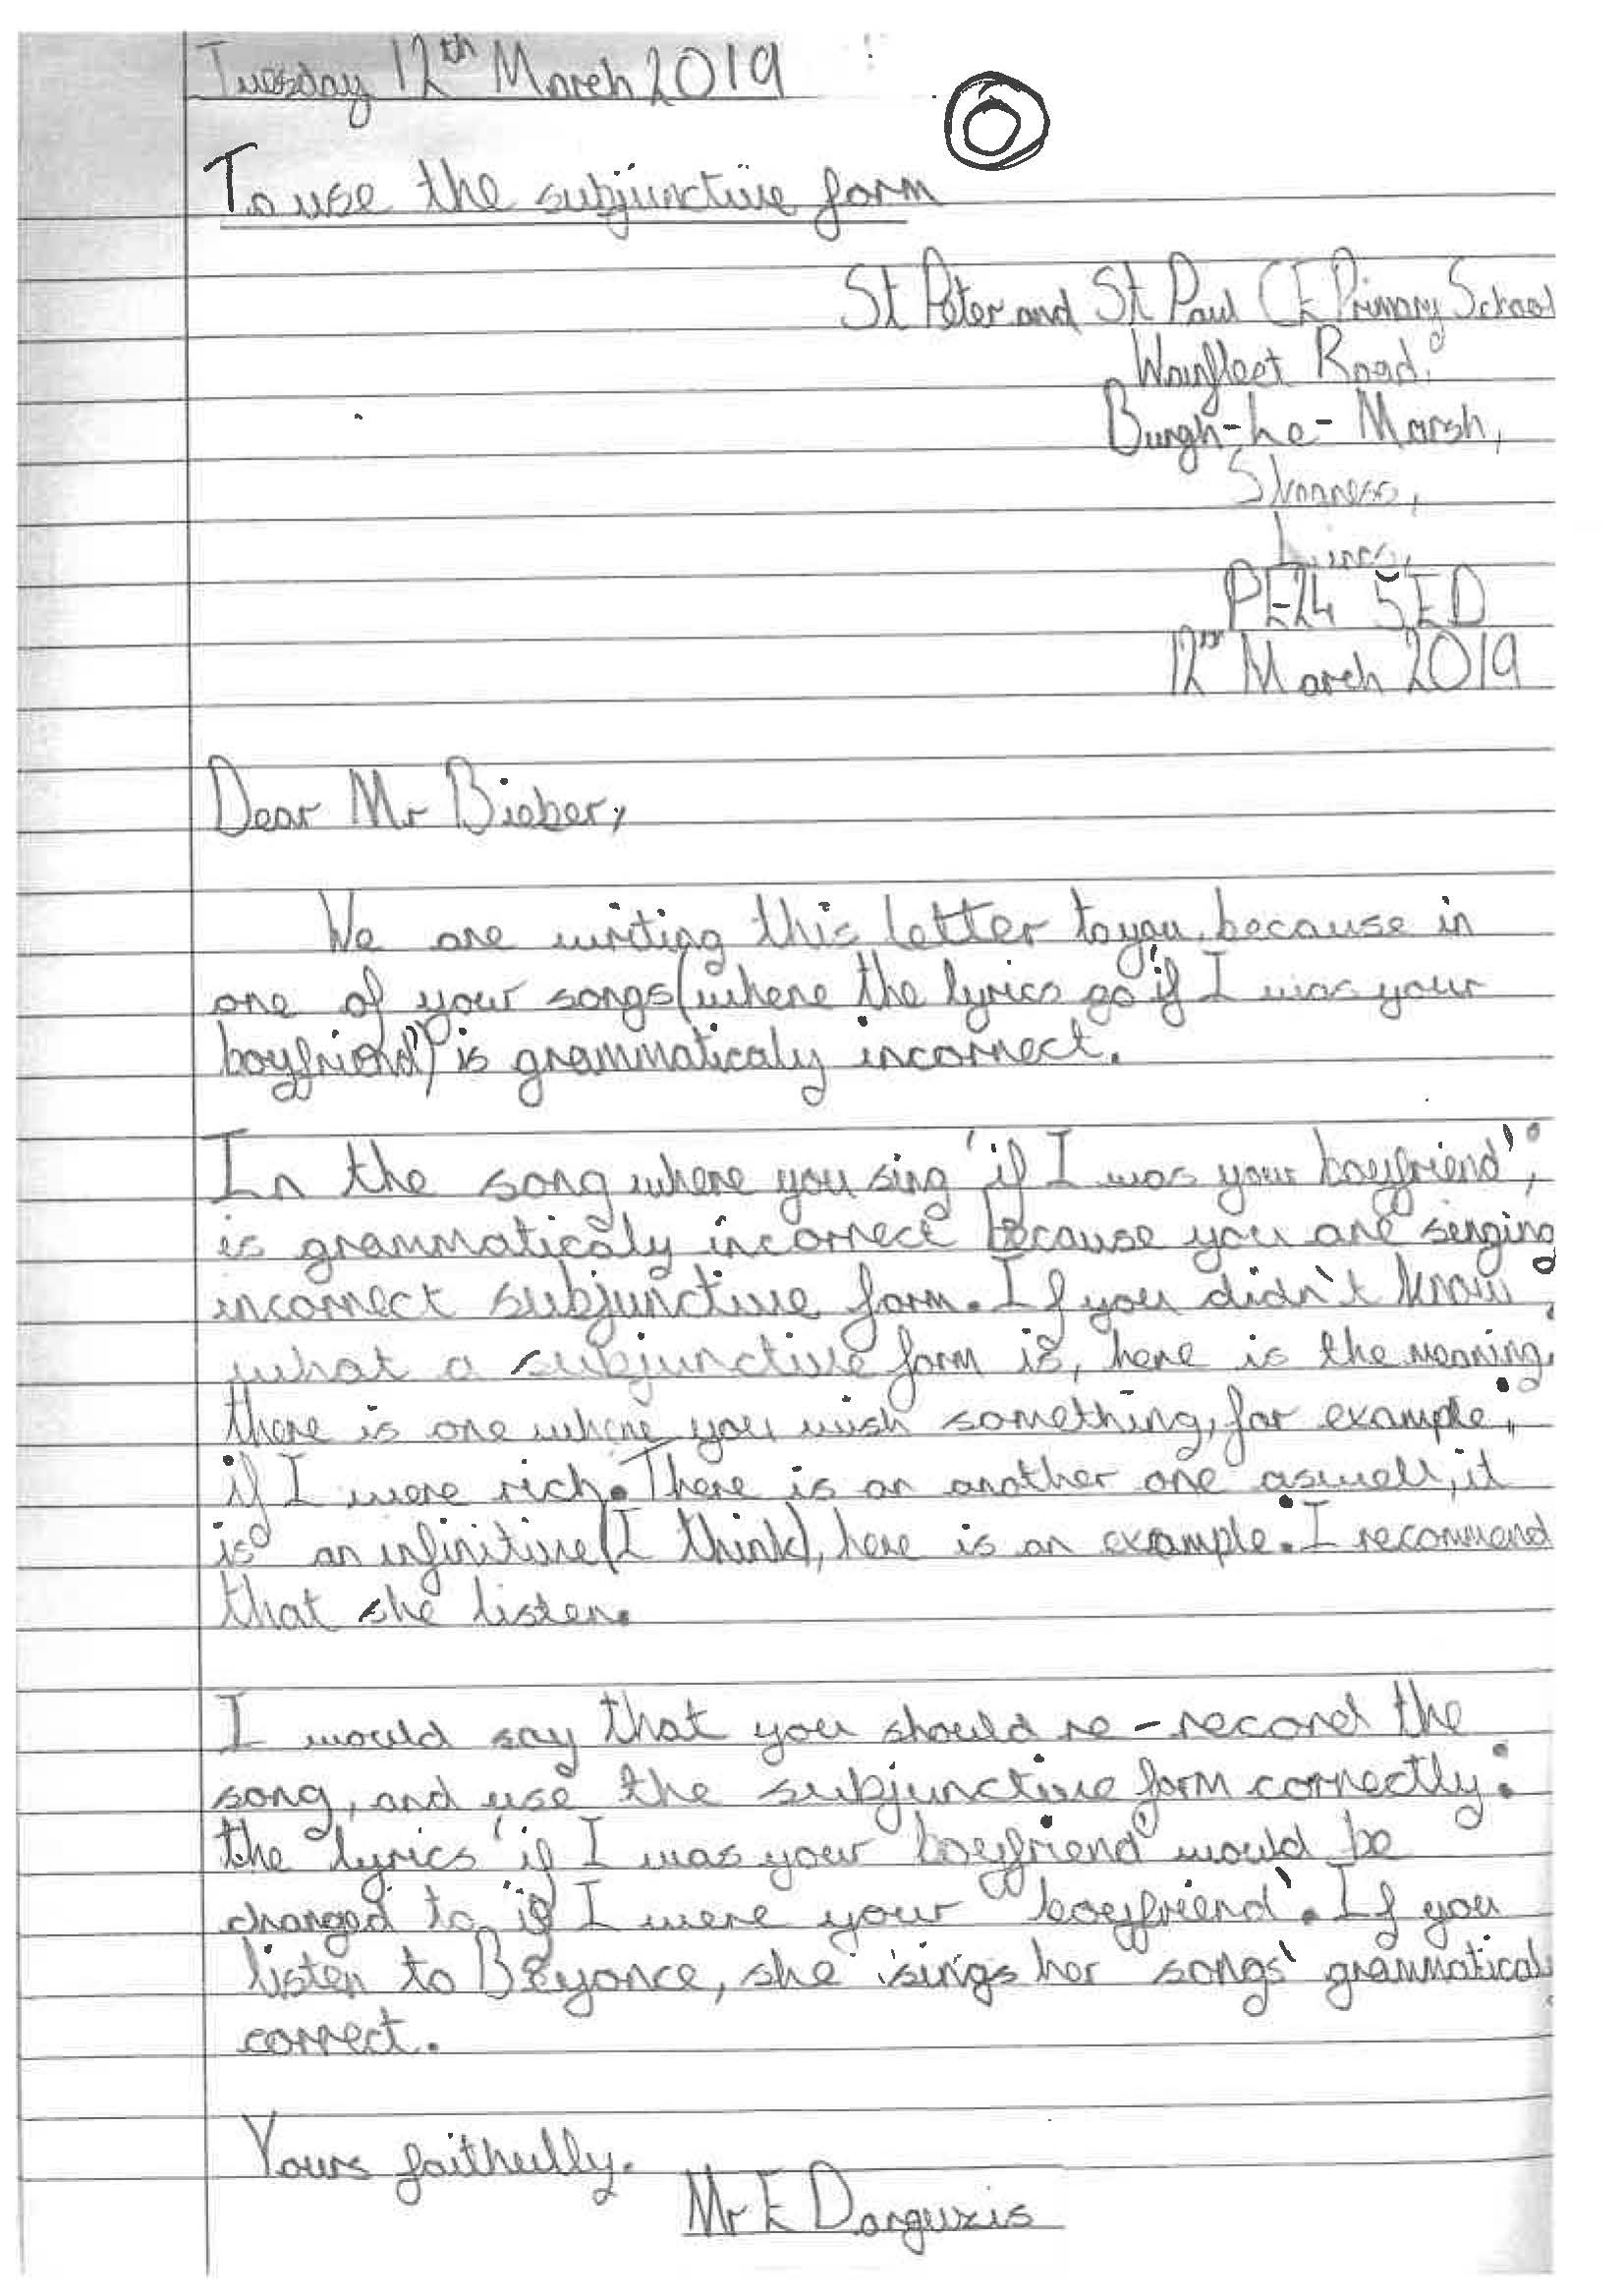 Tuesday 12th March 2019
To use the subjunctive form
St Peter and St Paul CE Primary School
Wainfleet Road,
Burgh-Le-Marsh,
Skegness,
Lincs,
PE24 5ED
12th March 2019
Dear Mr Bieber,
We are writing this letter to you, because in
one of your songs (where the lyrics go 'if I was your
boyfriend') is grammaticaly incorrect.
In the song where you sing 'if I was your boyfriend',
is grammaticaly incorrect because you are singing
incorrect subjunctive form. If you didn't know
what a subjunctive form is, here is the meaning,
there is one where you wish something, for example,
if I were rich. There is an another one aswell, it
is an infinitive (I think), here is an example. I recommend
that she listen.
I would say that you should re-record the
song, and use the subjunctive form correctly:
the lyrics 'if I was your boyfriend' would be
changed to 'if I were your boyfriend'. If you
listen to Beyonce, she 'sings her songs' grammatical
correct.
Yours faithully.
Mr E Darguzis